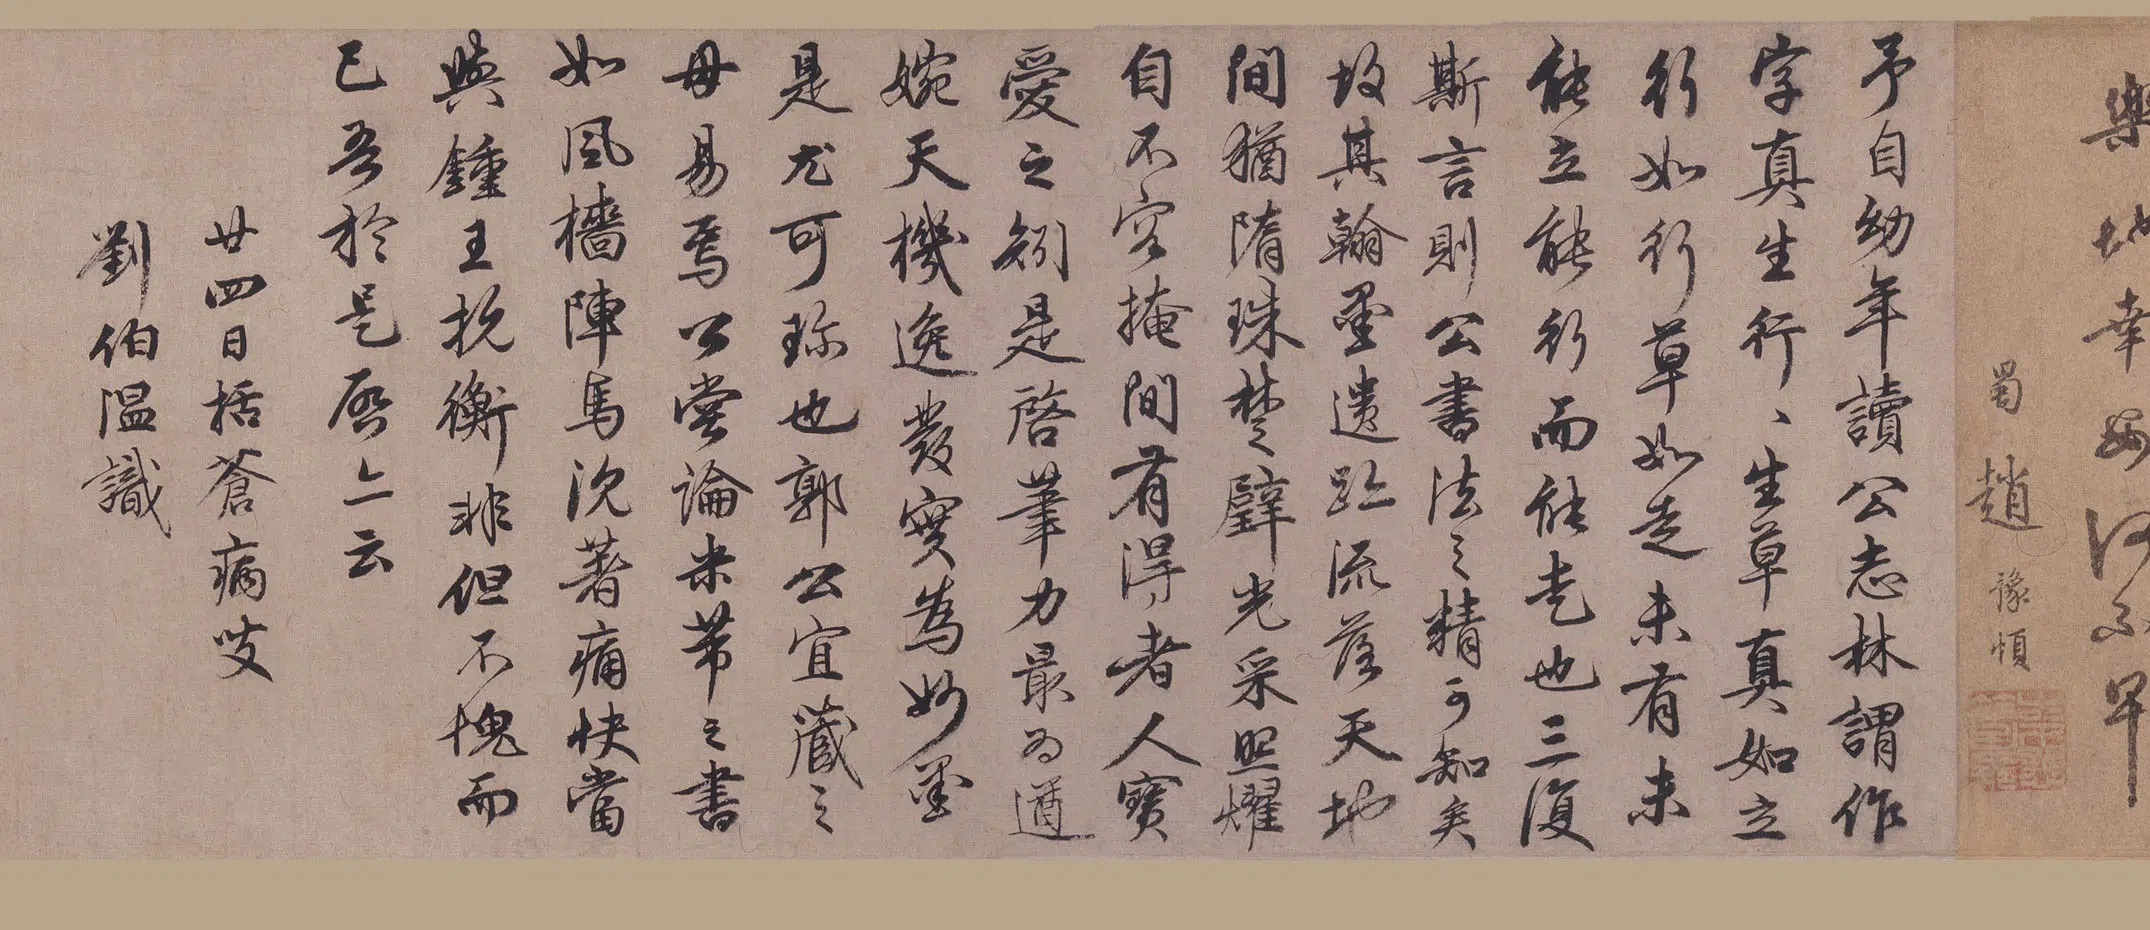 樂地幸
蜀趙
豫順
予自幼年讀公志林謂作
字真生行、生草真如立
行如行草如走未有未
能立能行而能走也三復
斯言則公書法之精可知矣
故其翰墨遺跡流落天地
間猶隋珠楚璧光采照耀
自不容掩間有得者人寶
愛之矧是啓筆力最為遒
婉天機逸發實為妙墨
是尤可珍也郭公宜藏之
毋易焉公嘗論米芾之書
如風檣陣馬沉著痛快當
與鍾王抗衡非但不愧而
已吾於是啓亦云
廿四日括蒼病叟
劉伯溫識